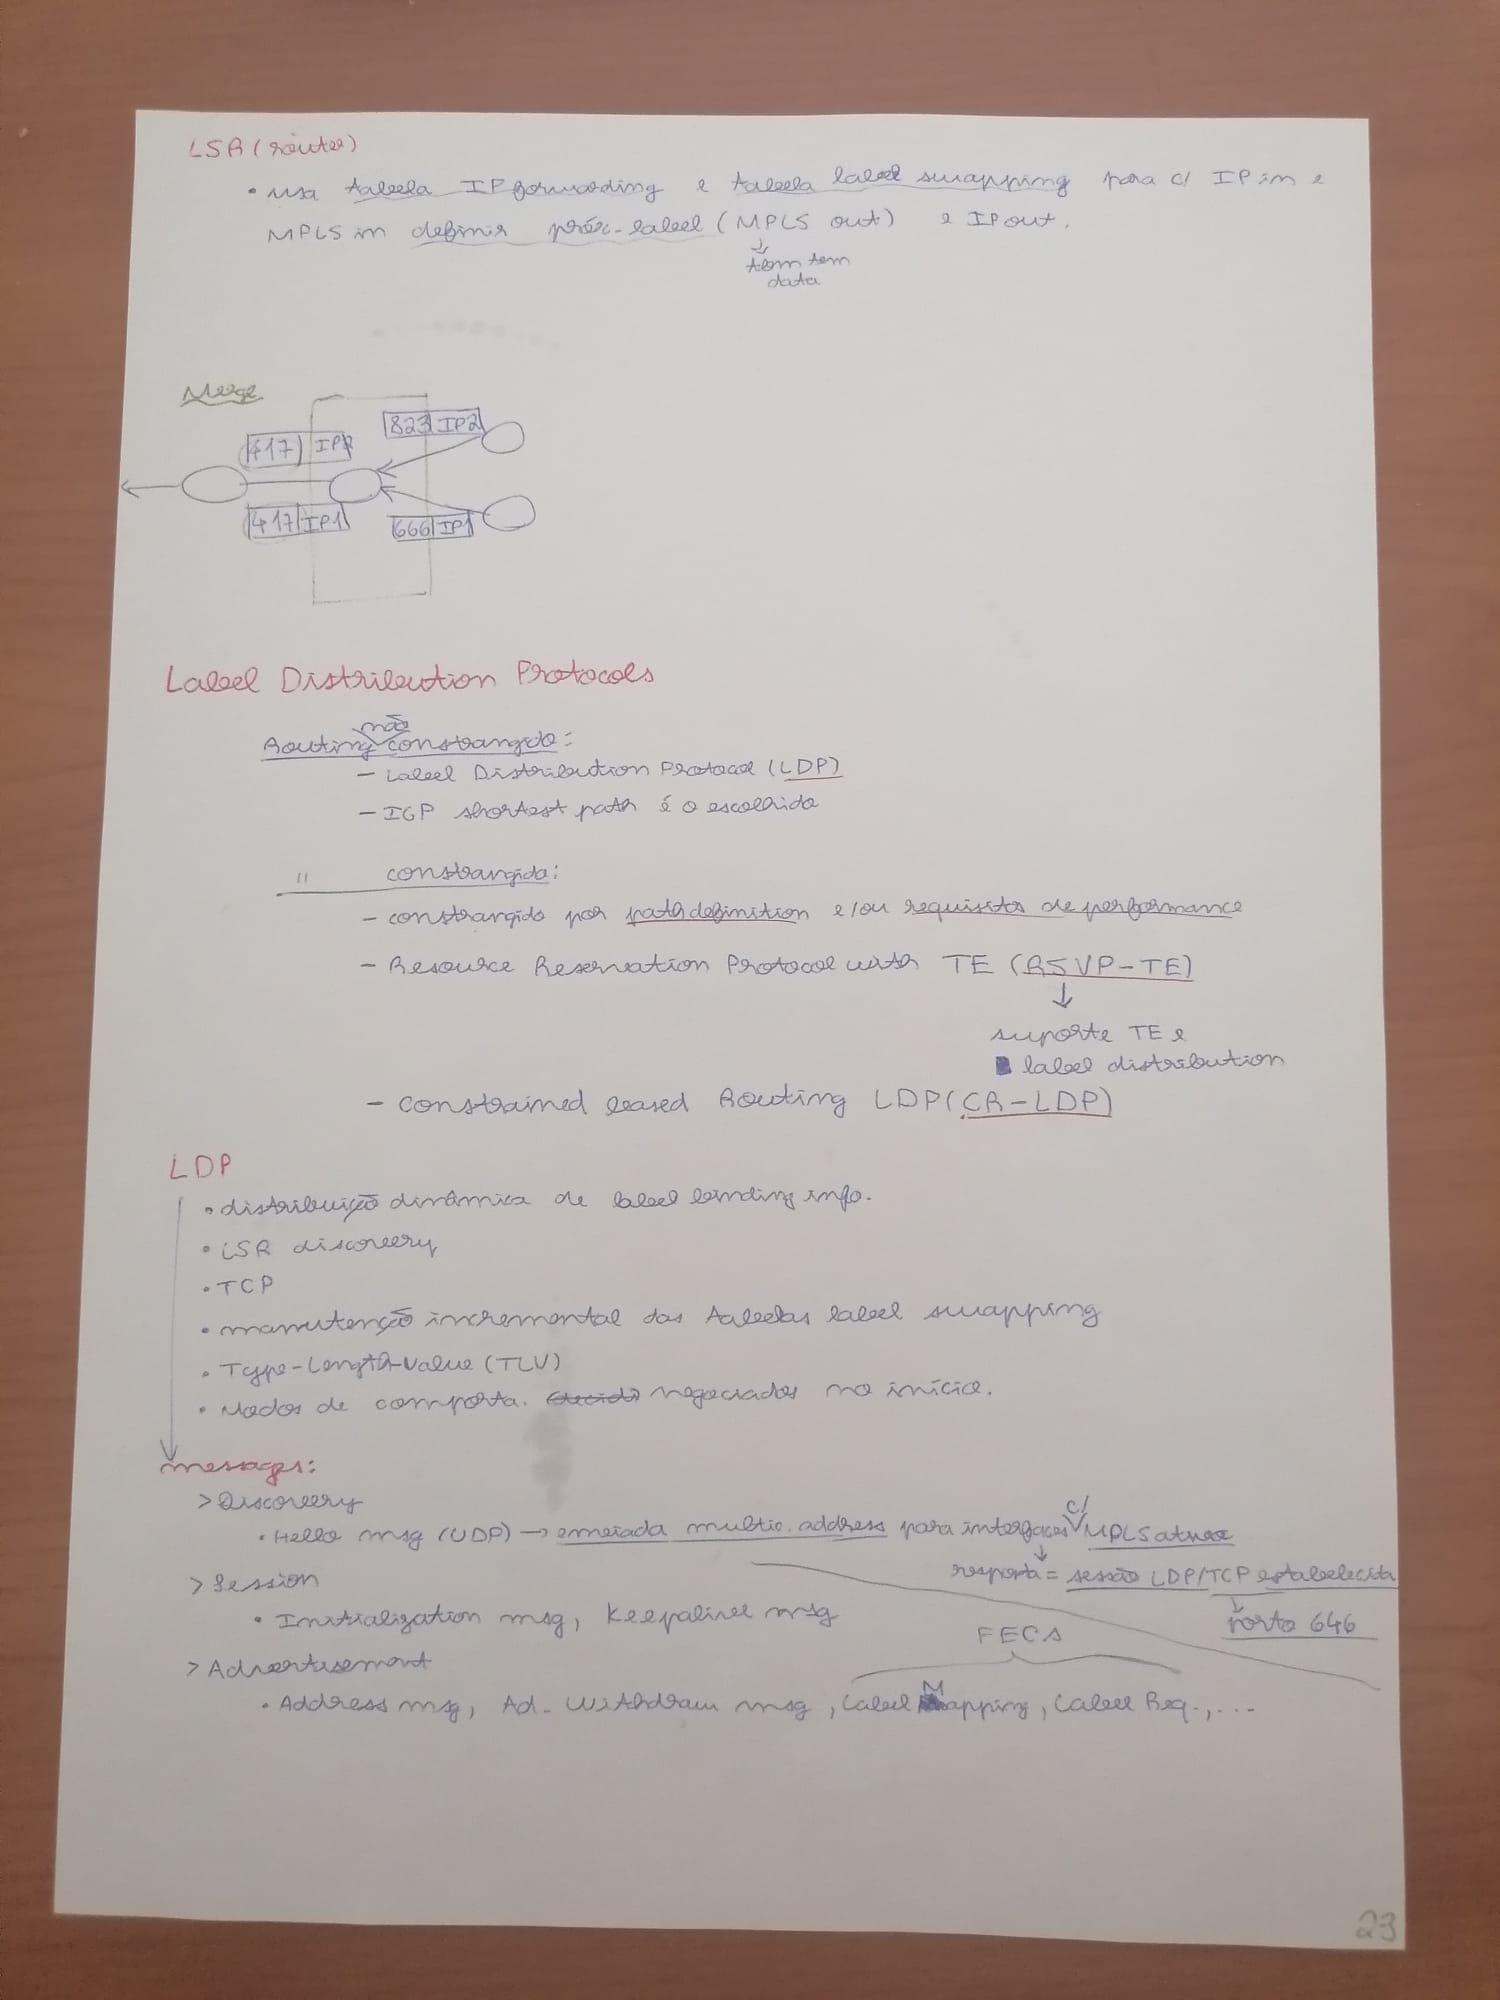 LSR (router)
• usa tabela IP forwarding e tabela label swapping para c/ IP in e
MPLS in definir próx. label (MPLS out) e IP out.
↓
tbm tem
data
Merge
823 IP2
417 IP2
417 IP1
666 IP1
Label Distribution Protocols
não
Routing constrangido:
- Label Distribution Protocol (LDP)
- IGP shortest path é o escolhido
" constrangido:
- constrangido por path definition e/ou requisitos de performance
- Resource Reservation Protocol with TE (RSVP-TE)
↓
suporte TE e
label distribution
- Constrained based Routing LDP (CR-LDP)
LDP
• distribuição dinâmica de label binding info.
• LSR discovery
• TCP
• manutenção incremental das tabelas label swapping
• Type-Length-Value (TLV)
• Modos de comporta. negociados no início.
messages:
> Discovery
• Hello msg (UDP) → enviada multic. address para interfaces c/ MPLS ativo
resposta = sessão LDP/TCP estabelecida
> Session
• Initialization msg, Keepalive msg
Porto 646
FECs
> Advertisement
• Address msg, Ad. Withdraw msg, Label Mapping, Label Req., ...
23